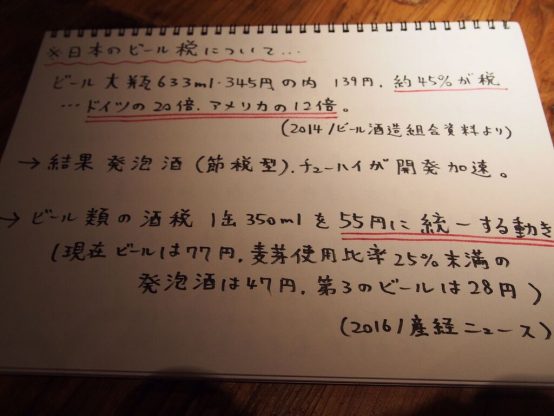 ※日本のビール税について…
ビール大瓶633ml・345円の内 139円、約45%が税
…ドイツの20倍、アメリカの12倍。
(2014/ビール酒造組合資料より)
→結果 発泡酒(節税型)、チューハイが開発加速。
→ビール類の酒税 1缶350mlを55円に統一する動き
(現在ビールは77円、麦芽使用比率25%未満の
発泡酒は47円、第3のビールは28円)
(2016/産経ニュース)